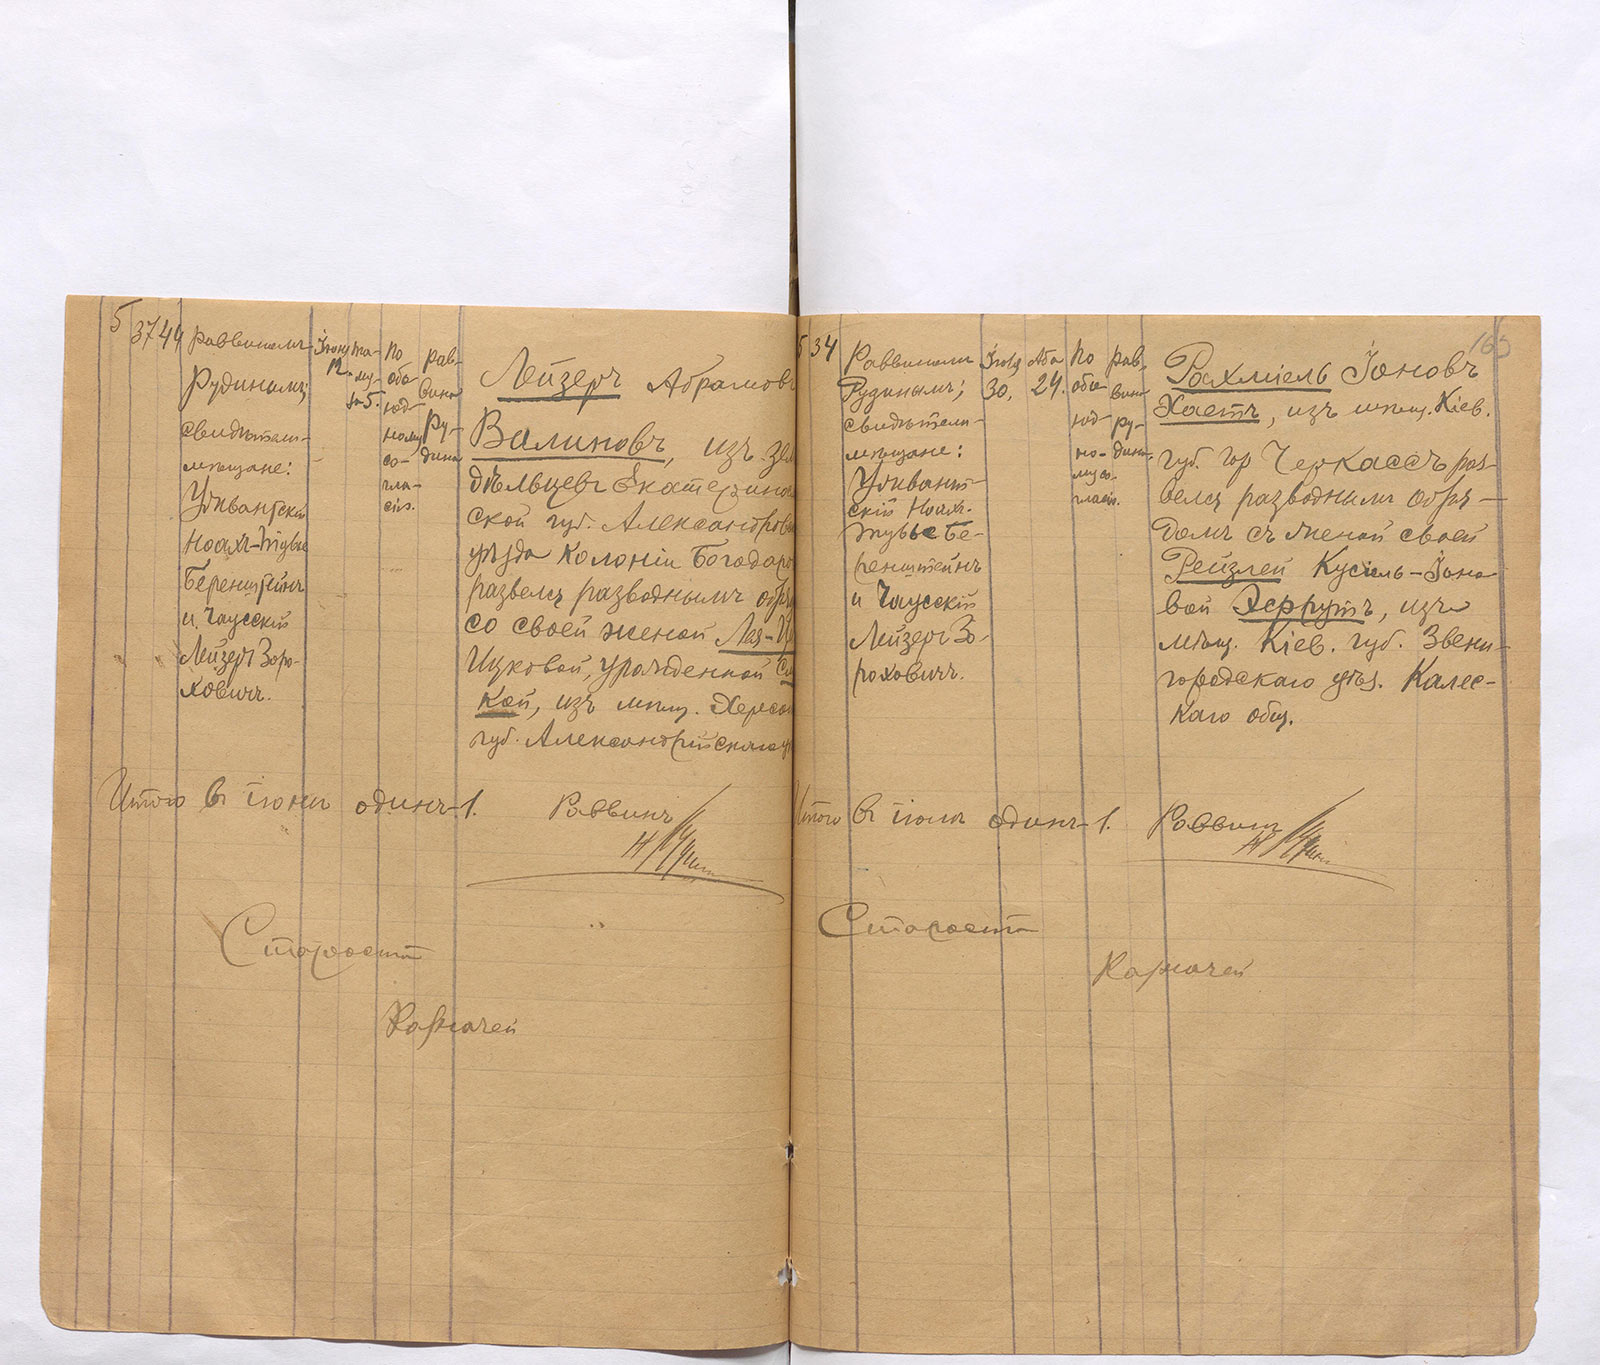 5
37 44
Раввиномъ
Рудинымъ;
свидѣтели-
мѣщане:
Уцивантскій
Ноахъ-Тувье
Беренштейнъ
и Чаусскій
Лейзеръ Зоро-
ховичъ.
Іюня
12.
Та-
му-
за 5.
По
обо-
юд-
ному
со-
гла-
сію.
рав-
вина
Ру-
дина
Лейзеръ Абрамовъ
Валиновъ, изъ зем
дѣльцевъ Екатеринос
ской губ. Александровс
уѣзда колоніи Богодаро
развелся разводнымъ обря
со своей женой Лея-
Ицковой, урожденной
кой, изъ мѣщ. Херсон
губ. Александрійскаго у
Итого въ іюнѣ одинъ-1. Раввинъ
Староста
Казначей
165
5 34
Раввиномъ
Рудинымъ;
свидѣтели-
мѣщане:
Уцивант-
скій Ноахъ-
Тувье Бе-
ренштейнъ
и Чаусскій
Лейзеръ Зо-
роховичъ.
Іюля
30.
Ава
24.
По
обо
юд-
но-
му со-
гласію.
рав-
вина
Ру-
дина
Рахміель Іоновъ
Хаетъ, изъ мѣщ. Кіев.
губ. гор Черкассъ раз-
велся разводнымъ обря-
домъ съ женой своей
Рейзлей Кусіель-Іоно
вой Эфрутъ, изъ
мѣщ. Кіев. губ. Звени-
городскаго уѣз. Калес-
каго общ.
Итого въ іюлѣ одинъ-1. Раввинъ
Староста
Казначей